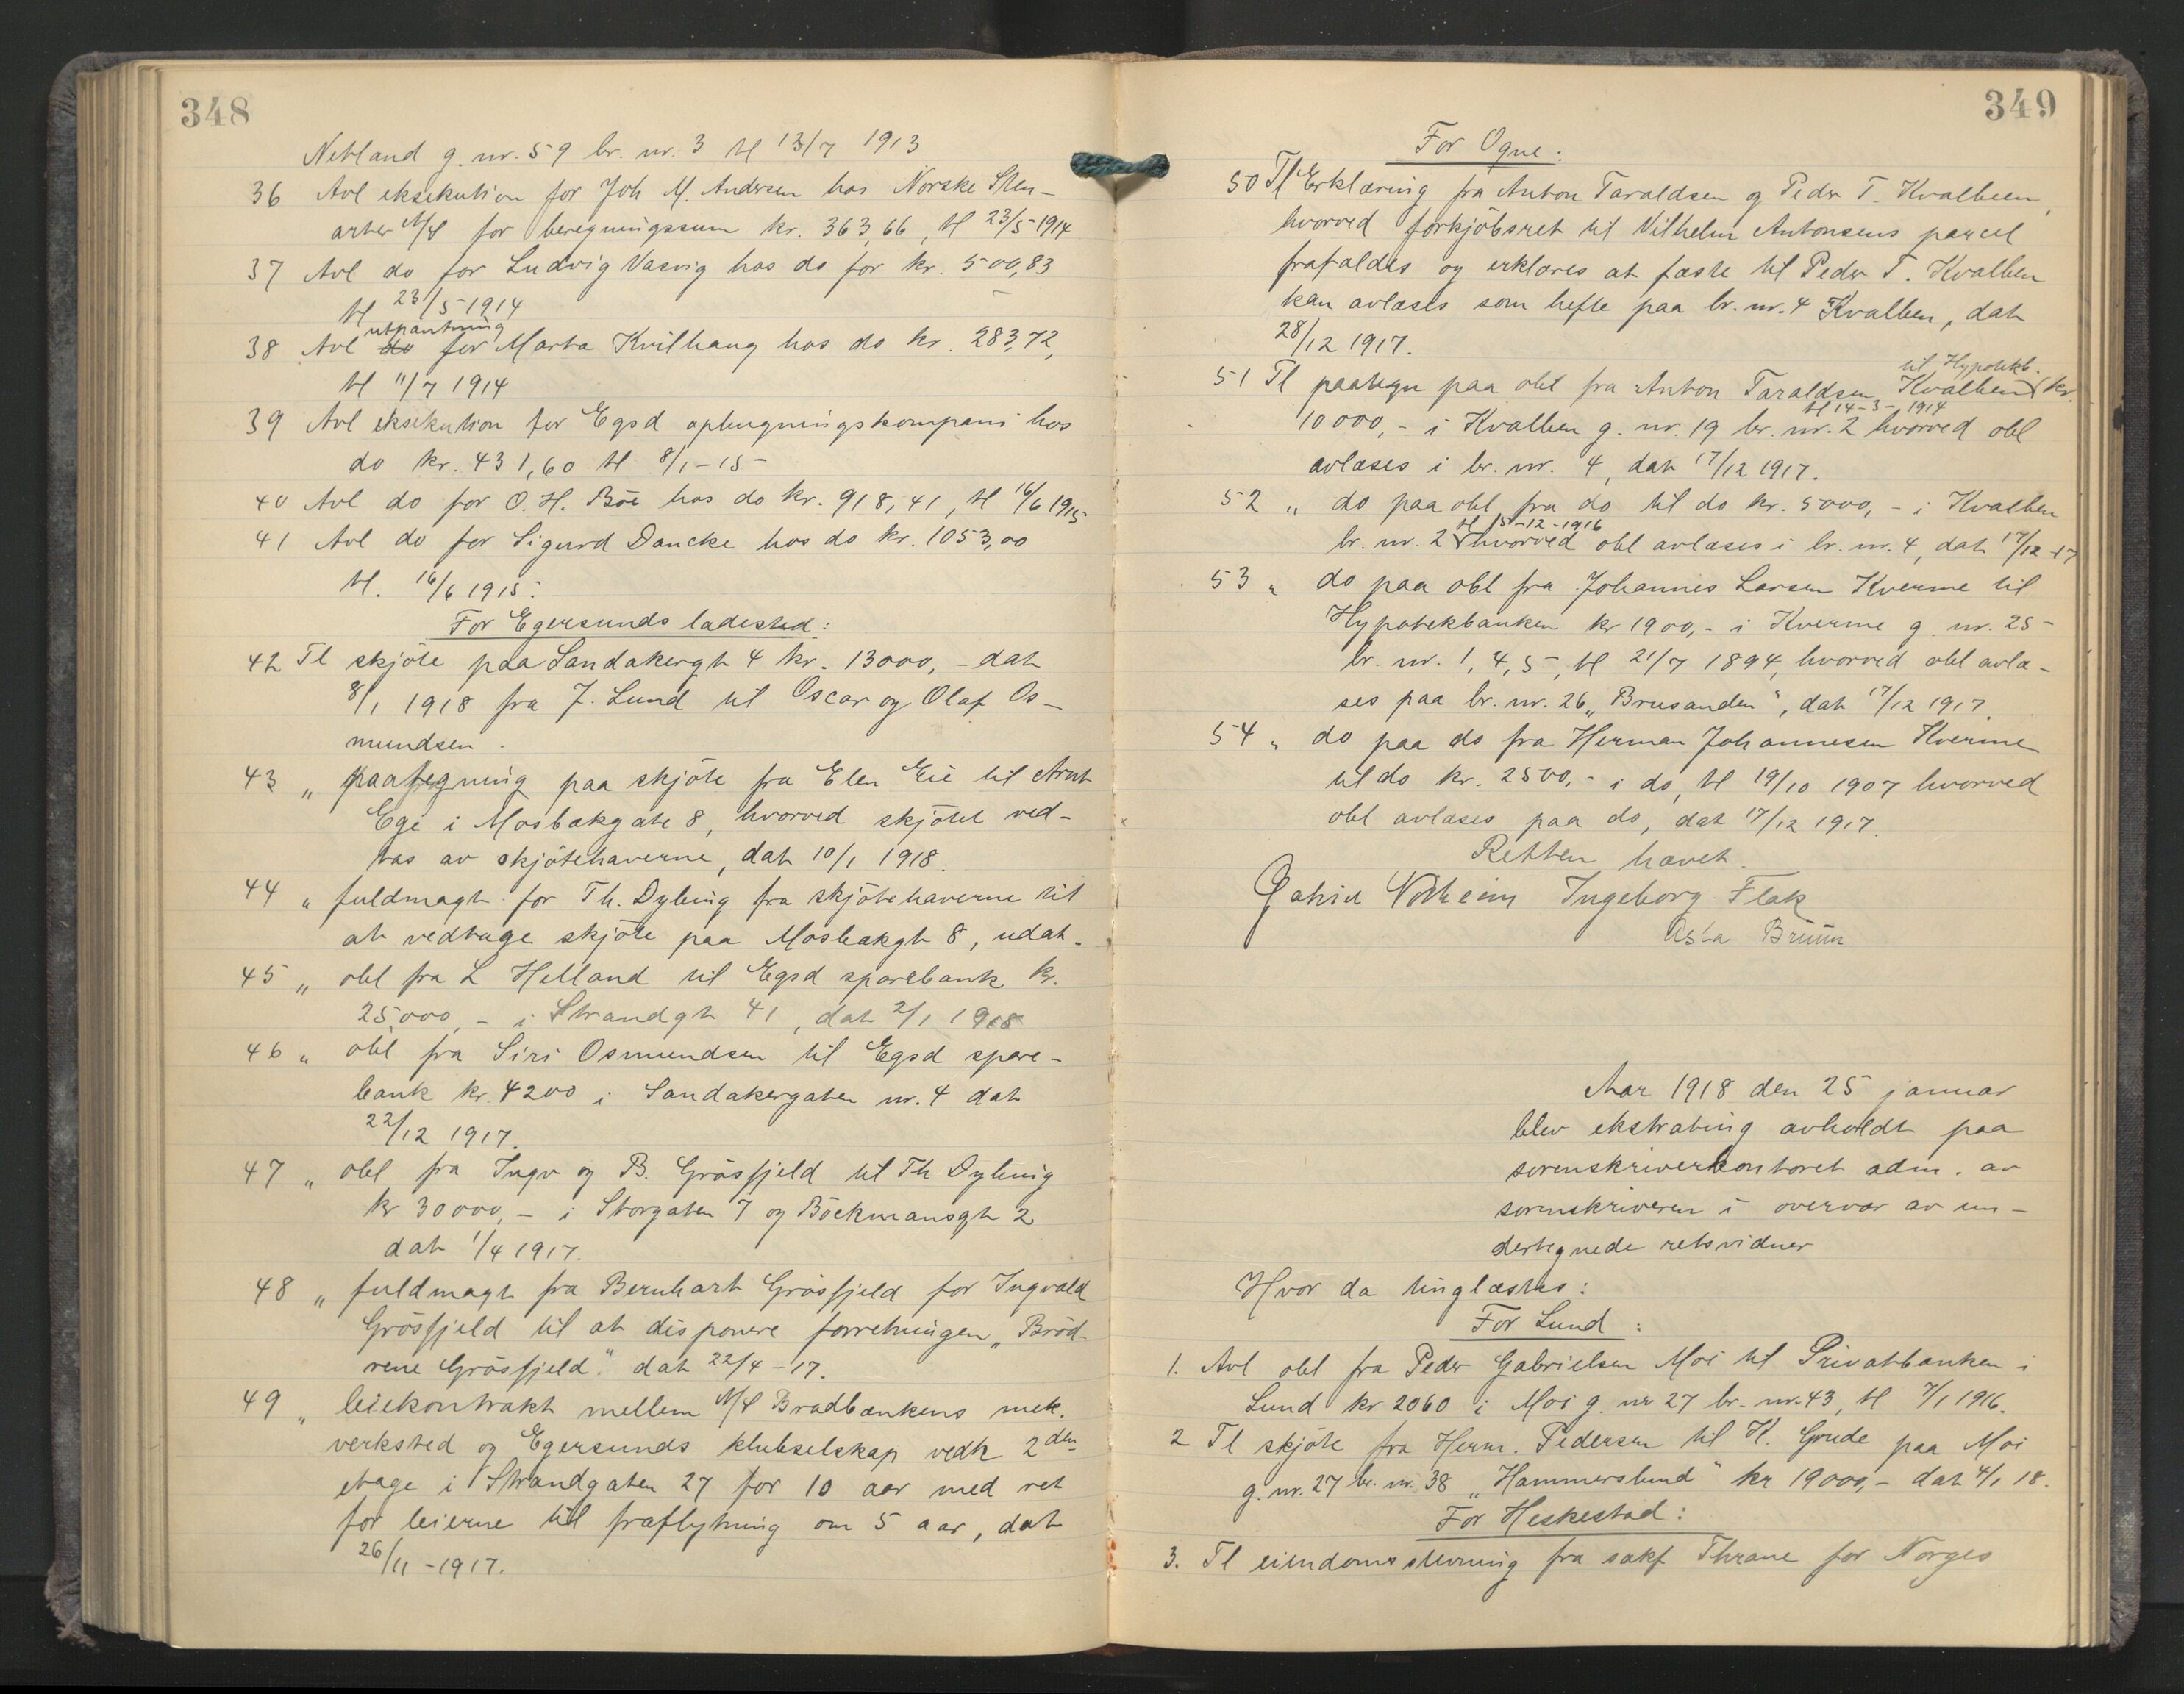 348
Netland g. nr. 59 br. nr. 3 tl 13/7 1913
36 Avl eksekution for Joh M. Andersen hos Norske Sten-
arter A/S for beregningssum kr. 363,66, tl 23/5 1914
37 Avl do for Ludvig Vasvig hos do for kr. 500,83
tl 23/5 1914
utpantning
38 Avl do for Marta Kvilhaug hos do kr. 283,72,
tl 11/7 1914
39 Avl eksekution for Egsd ophugningskompani hos
do kr. 431,60 tl 8/1-15
40 Avl do for O. H. Böe hos do kr. 918,41, tl 16/6 1915
41 Avl do for Sigurd Dancke hos do kr. 1053,00
tl. 16/6 1915.
For Egersunds ladested:
42 Tl skjöte paa Sandakergt 4 kr. 13000,- dat
8/1 1918 fra J. Lund til Oscar og Olaf Os-
mundsen.
43 „ paategning paa skjöte fra Elen Eie til Arnt
Ege i Mosbækgate 8, hvorved skjötet ved-
tas av skjötehaverne, dat 10/1 1918.
44 „ fuldmagt for Th. Dybing fra skjötehaverne til
at vedtage skjöte paa Mosbækgt 8, udat.
45 „ obl fra L Helland til Egsd sparebank kr.
25,000,- i Strandgt 41, dat 2/1 1918
46 „ obl fra Siri Osmundsen til Egsd spare-
bank kr. 4200 i Sandakergaten nr. 4 dat
22/12 1917.
47 „ obl fra Ingv og B. Grösfjeld til Th Dybing
kr 30000,- i Storgaten 7 og Böckmansgt 2
dat 1/4 1917.
48 „ fuldmagt fra Bernhart Grösfjeld for Ingvald
Grösfjeld til at disponere forretningen „Bröd-
rene Grösfjeld" dat 22/4-17.
49 „ leiekontrakt mellem A/S Bradbænkens mek.
verksted og Egersunds klubselskap vedk 2den
etage i Strandgaten 27 for 10 aar med ret
for leierne til fraflytning om 5 aar, dat
26/11-1917.
349
For Ogne:
50 Tl Erklæring fra Anton Taraldsen og Peder T. Kvalbein,
hvorved forkjöbsret til Vilhelm Antonsens parcel
frafaldes og erklæres at fæste til Peder T. Kvalben
kan avlæses som hefte paa br. nr. 4 Kvalben, dat
28/12 1917.
til Hypotekb.
51 Tl paategn paa obl fra Anton Taraldsen Kvalben kr.
tl 14-3-1914
10000,- i Kvalben g. nr. 19 br. nr. 2 hvorved obl
avlæses i br. nr. 4, dat 17/12 1917.
52 „ do paa obl fra do til do kr. 5000,- i Kvalben
tl 15-12-1916
br. nr. 2 hvorved obl avlæses i br. nr. 4, dat 17/12 17
53 „ do paa obl fra Johannes Larsen Kverme til
Hypotekbanken kr 1900,- i Kverme g. nr. 25
br. nr. 1, 4, 5, tl 21/7 1894, hvorved obl avlæ-
ses paa br. nr. 26 „Brusanden", dat 17/12 1917.
54 „ do paa do fra Herman Johannesen Kverme
til do kr. 2500,- i do, tl 19/10 1907 hvorved
obl avlæses paa do, dat 17/12 1917.
Retten hævet.
Ingeborg Flak
Asta Bruun
Aar 1918 den 25 januar
blev ekstrating avholdt paa
sorenskriverkontoret adm. av
sorenskriveren i overvær av un-
dertegnede retsvidner
Hvor da tinglæstes:
For Lund:
1. Avl obl fra Peder Gabrielsen Moi til Privatbanken i
Lund kr 2060 i Moi g. nr 27 br. nr. 43, tl 7/1 1916.
2 Tl skjöte fra Herm. Pedersen til K. Grude paa Moi
g. nr. 27 br. nr. 38 „Hammerslund" kr 19000,- dat 4/1 18.
For Heskestad:
3. Tl eiendomsstevning fra sakf Thrane for Norges